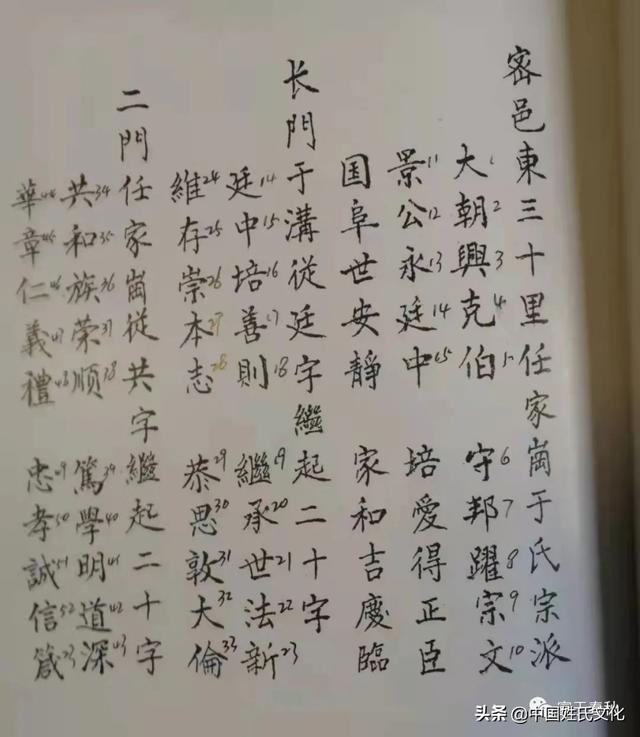 密邑東三十里任家崗于氏宗派
大1朝2興3克4伯5 守6邦7躍8宗9文10
景11公12永13廷14中15 培愛得正臣
国阜世安靜 家和吉慶臨
长門于溝從廷字繼起二十字
廷14中15培16善17則18 繼19承20世21法22新23
維24存25崇26本27志28 恭29思30敦31大32倫33
二門任家崗從共字繼起二十字
共34和35族36荣37顺38 篤39學40明41道42深43
華44章45仁46義47禮48 忠49孝50誠51信52箴53
头条 @中国姓氏文化